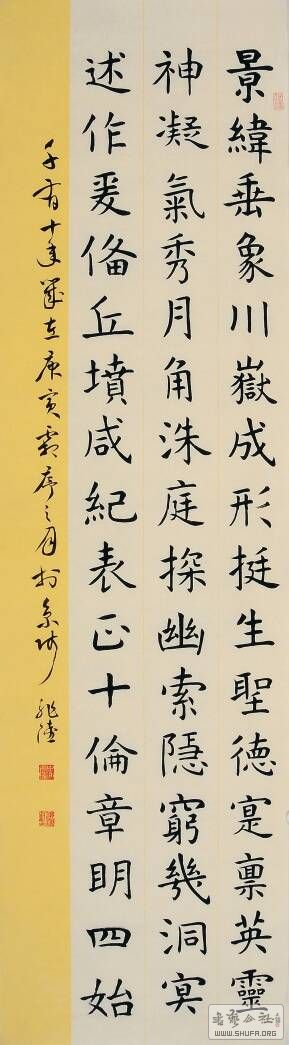 景緯垂象川嶽成形挺生聖德寔稟英靈
神凝氣秀月角洙庭探幽索隱窮幾洞冥
述作爰備丘墳咸紀表正十倫章明四始
千有十年歲在庚寅霜序之月於京
书艺公社
WWW.SHUFA.ORG